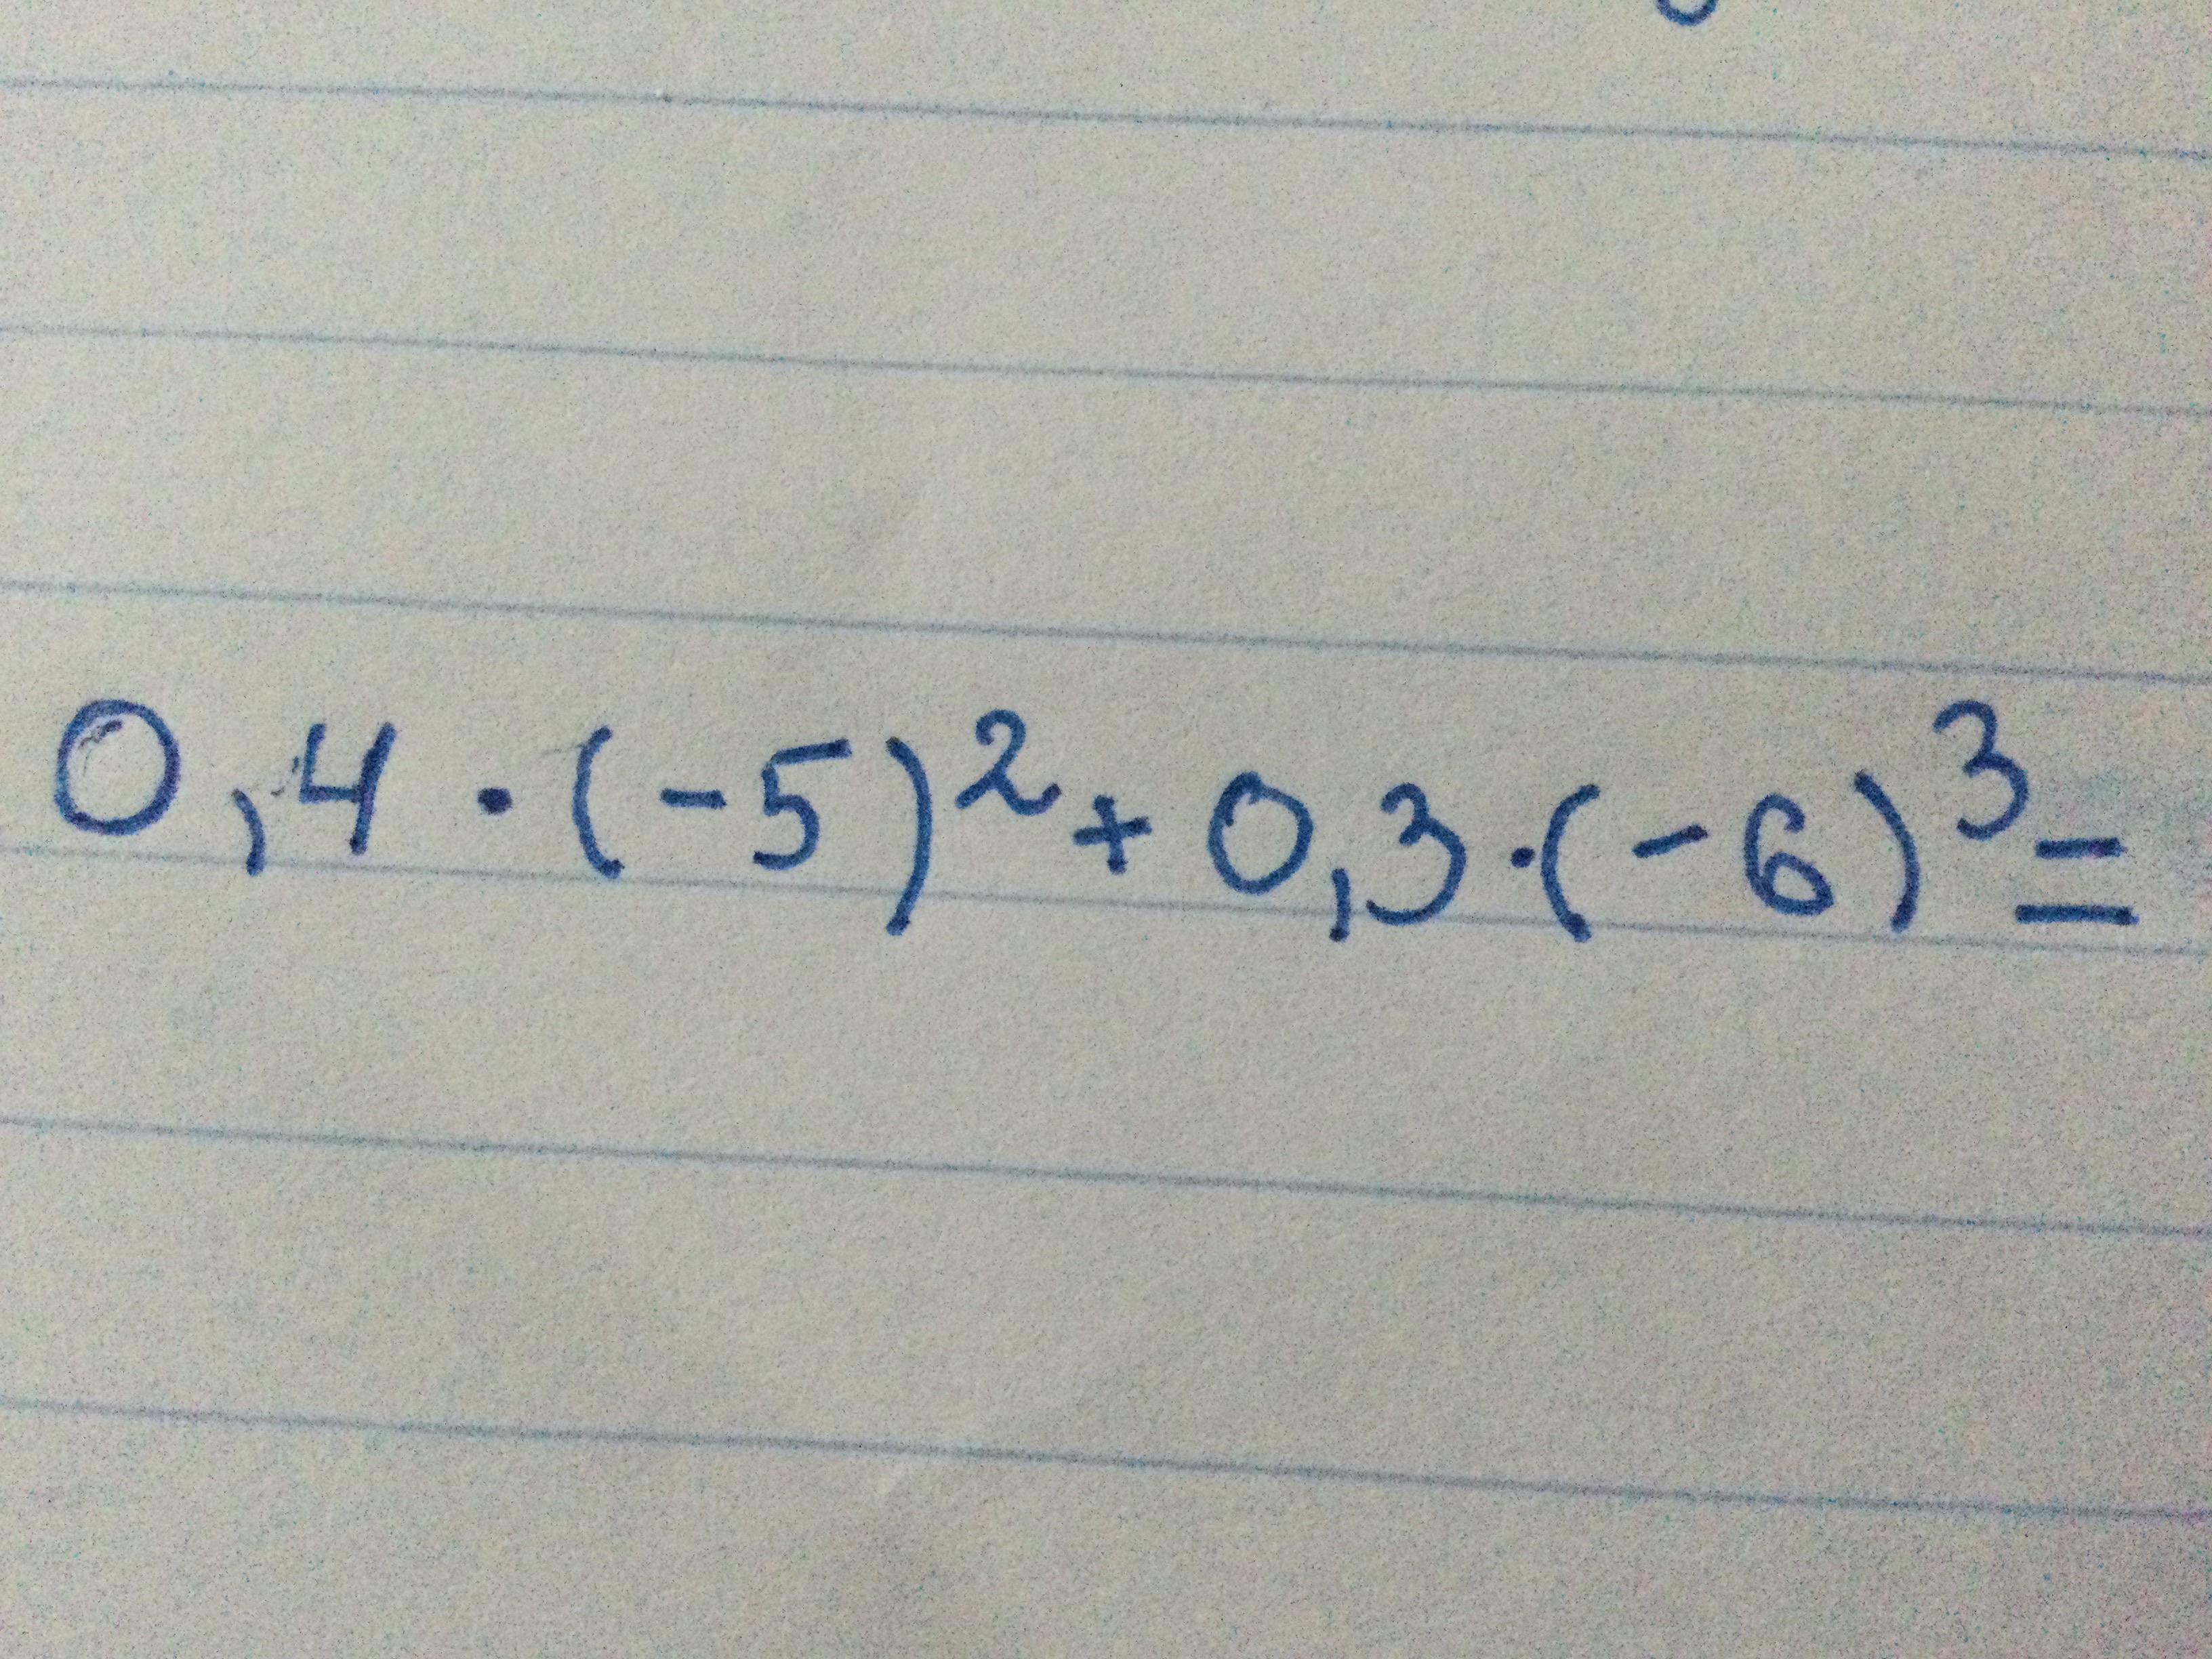 0,4 · (-5)² + 0,3 · (-6)³ =